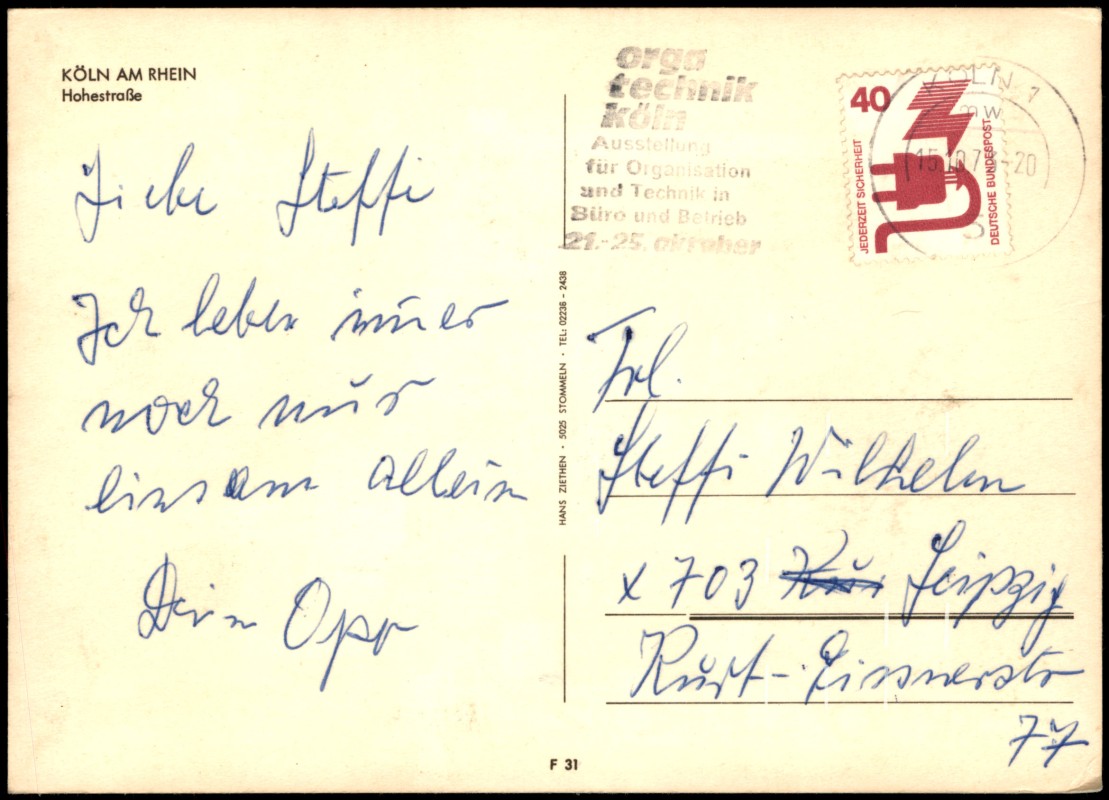 KÖLN AM RHEIN
Hohestraße
Liebe Steffi
Ich lebe immer
noch nur
einsam allein
Dein Opp
HANS ZIETHEN · 5025 STOMMELN · TEL: 02238 - 2438
F 31
orga
technik
köln
Ausstellung
für Organisation
und Technik in
Büro und Betrieb
21.-25. oktober
40
JEDERZEIT SICHERHEIT
DEUTSCHE BUNDESPOST
KÖLN 1
mw
15.10.7 -20
Frl.
Steffi Wilhelm
X 703 Leipzig
Kurt-Eisnerstr
77